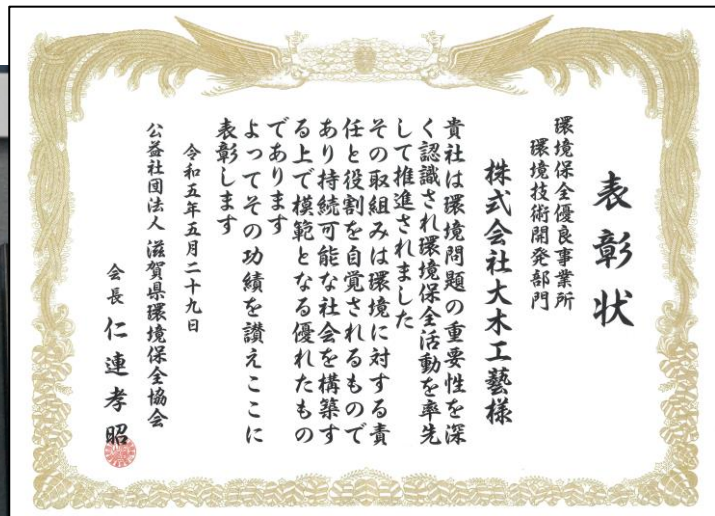 表彰状
環境保全優良事業所
環境技術開発部門
株式会社大木工藝様
貴社は環境問題の重要性を深
く認識され環境保全活動を率先
して推進されました
その取組みは環境に対する責
任と役割を自覚されるもので
あり持続可能な社会を構築す
る上で模範となる優れたもの
であります
よってその功績を讃えここに
表彰します
令和五年五月二十九日
公益社団法人 滋賀県環境保全協会
会長 仁連孝昭